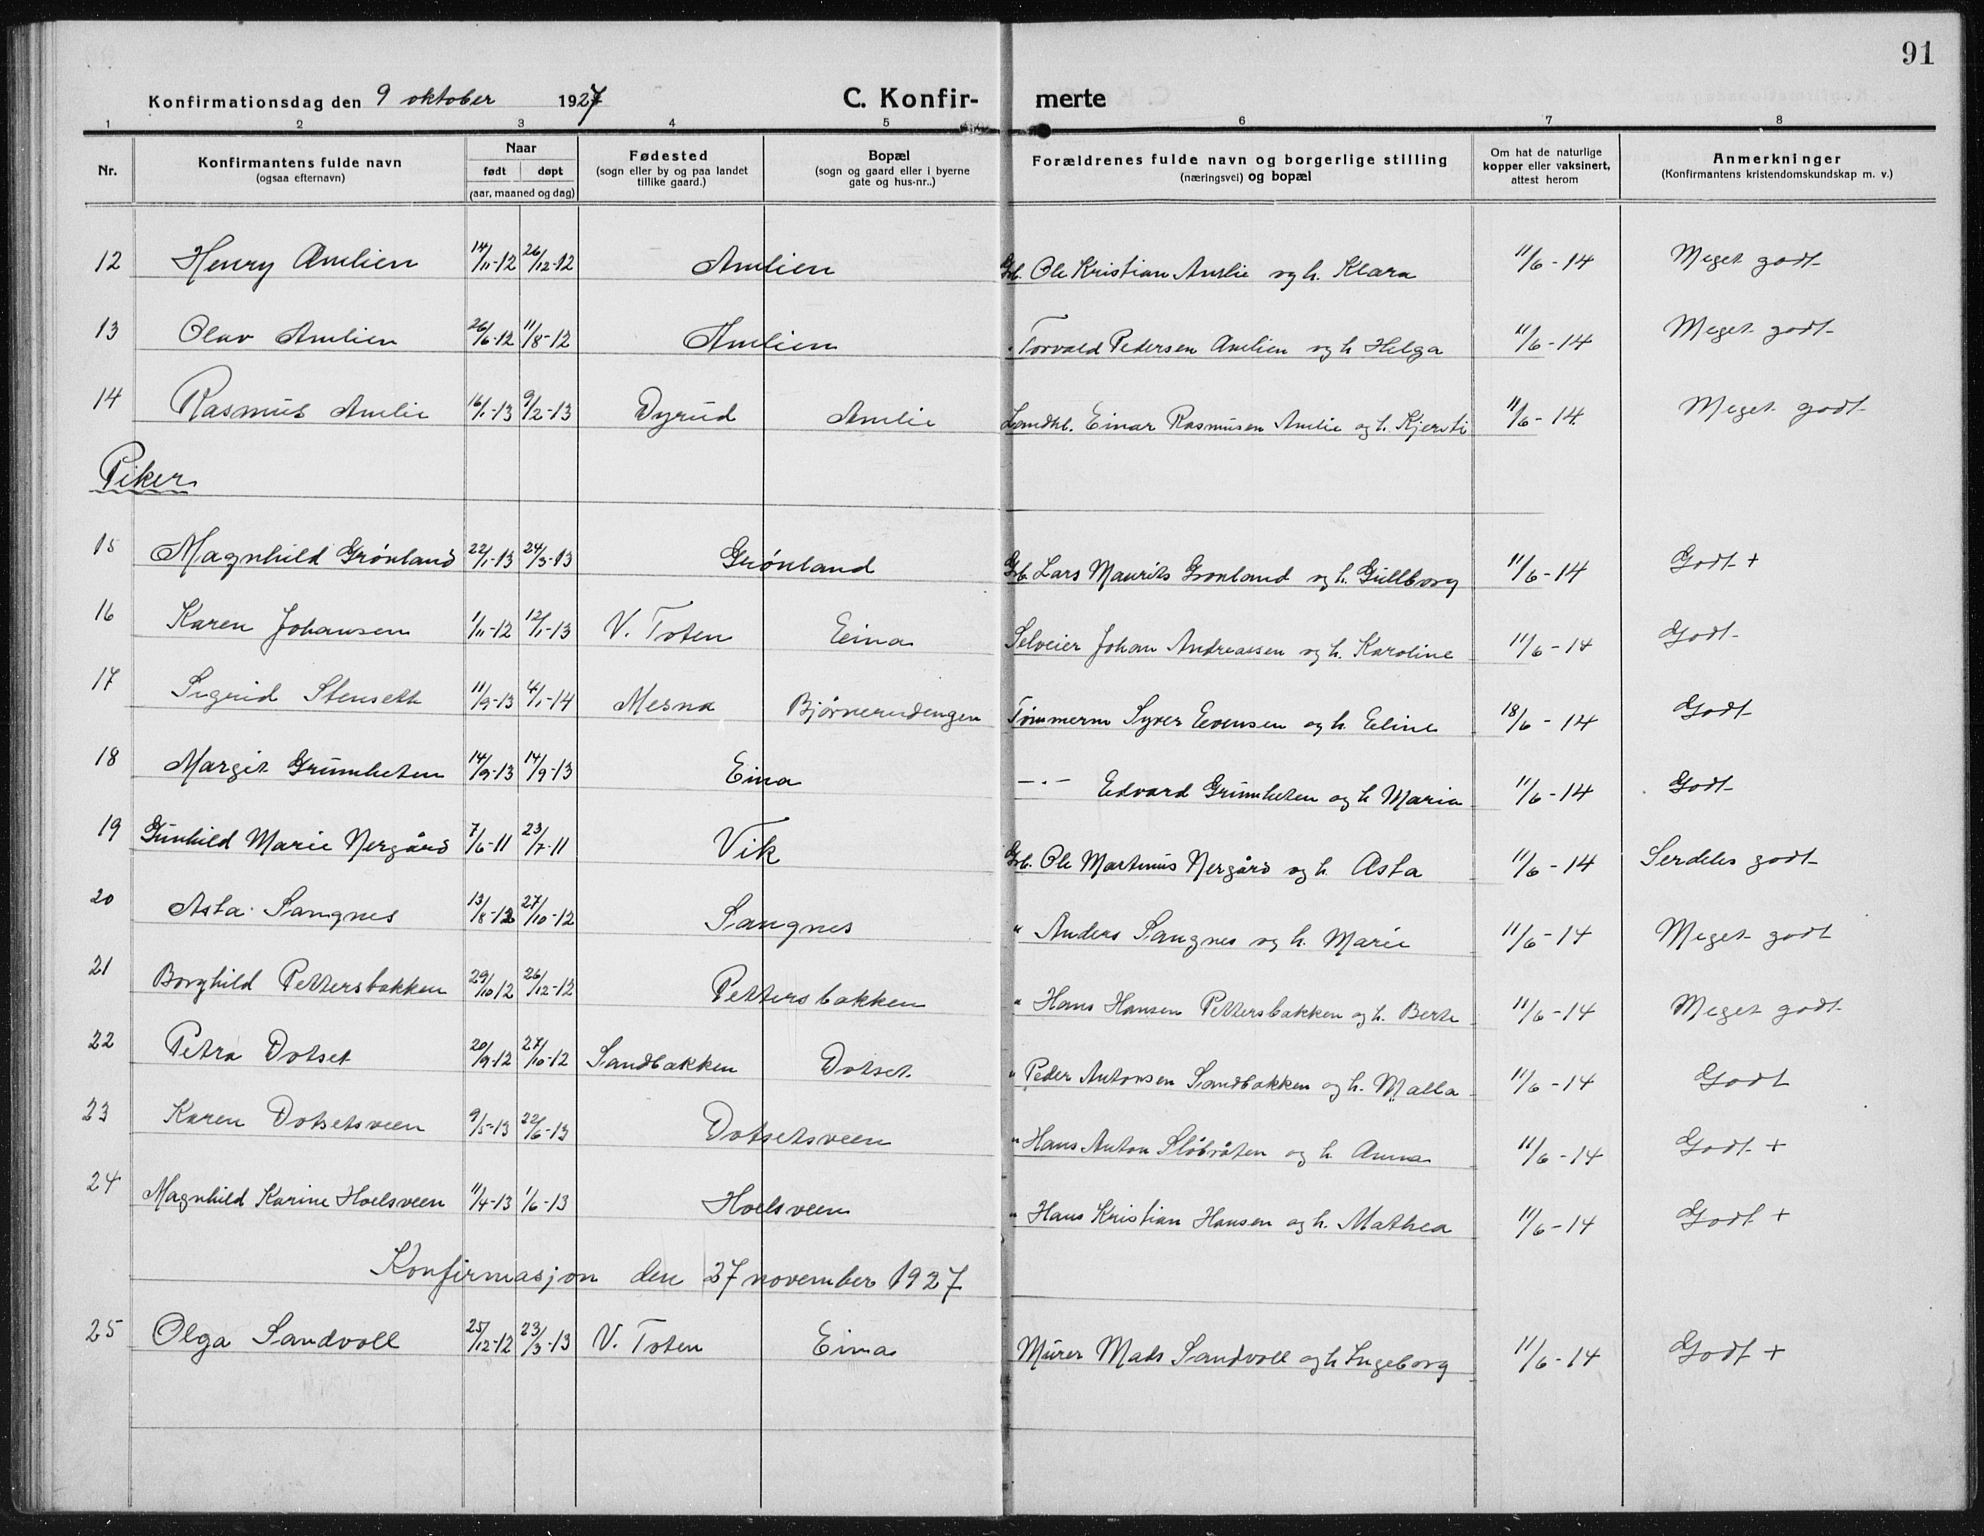 91
Konfirmationsdag den 9 oktober 1927 C. Konfir- merte
1 2 3 4 5 6 7 8
Nr. Konfirmantens fulde navn (ogsaa efternavn) Naar født døpt (aar, maaned og dag) Fødested (sogn eller by og paa landet tillike gaard.) Bopæl (sogn og gaard eller i byerne gate og hus-nr..) Forældrenes fulde navn og borgerlige stilling (næringsvei) og bopæl Om hat de naturlige kopper eller vaksinert, attest herom Anmerkninger (Konfirmantens kristendomskundskap m. v.)
12 Henry Amlien 14/11-12 26/12-12 Amlien Grb. Ole Kristian Amlie og h. Klara 11/6-14 Meget godt
13 Olav Amlien 26/6-12 11/8-12 Amlien " Torvald Pedersen Amlien og h Helga 11/6-14 Meget godt
14 Rasmus Amlie 16/1-13 9/2-13 Dyrud Amlie Landhl. Einar Rasmusen Amlie og h. Kjersti 11/6-14. Meget godt
Piker
15 Magnhild Grönland 22/1-13 24/3-13 Grönland Grb. Lars Maurits Gronland og h. Gullborg 11/6-14 Godt +
16 Karen Johansen 1/11-12 12/1-13 V. Toten Eina Selveier Johan Andreassen og h. Karoline 11/6-14 Godt
17 Sigrid Stenseth 11/9-13 4/1-14 Mesna Bjørnerudengen Tömmerm Syver Evensen og h. Eline 18/6-14 Godt
18 Margit Grümheten 14/9-13 14/9-13 Eina —·— Edvard Grümheten og h Maria 11/6-14 Godt
19 Günhild Marie Nergård 7/6-11 23/7-11 Vik Grb. Ole Martinus Nergård og h. Asta 11/6-14 Serdeles godt
20 Asta Sangnes 13/8-12 27/10-12 Sangnes " Anders Sangnes og h. Marie 11/6-14 Meget godt
21 Borghild Pettersbakken 29/10 12 26/12-12 Pettersbakken " Hans Hansen Pettersbakken og h. Berte 11/6-14 Meget godt
22 Petra Dotset 20/9-12 27/10-12 Sandbakken Dotset " Peder Antonsen Sandbakken og h. Malla 11/6-14 Godt
23 Karen Dotsetsveen 9/5-13 22/6-13 Dotsetsveen " Hans Anton Slåbråten og h Anna 11/6-14 Godt +
24 Magnhild Karine Hoelsveen 11/4-13 1/6-13 Hoelsveen " Hans Kristian Hansen og h. Mathea 11/6-14 Godt +
Konfirmasjon den 27 november 1927
25 Olga Sandvoll 25/12-12 23/3-13 V. Toten Eina Mürer Mads Sandvoll og h Ingeborg 11/6-14 Godt +